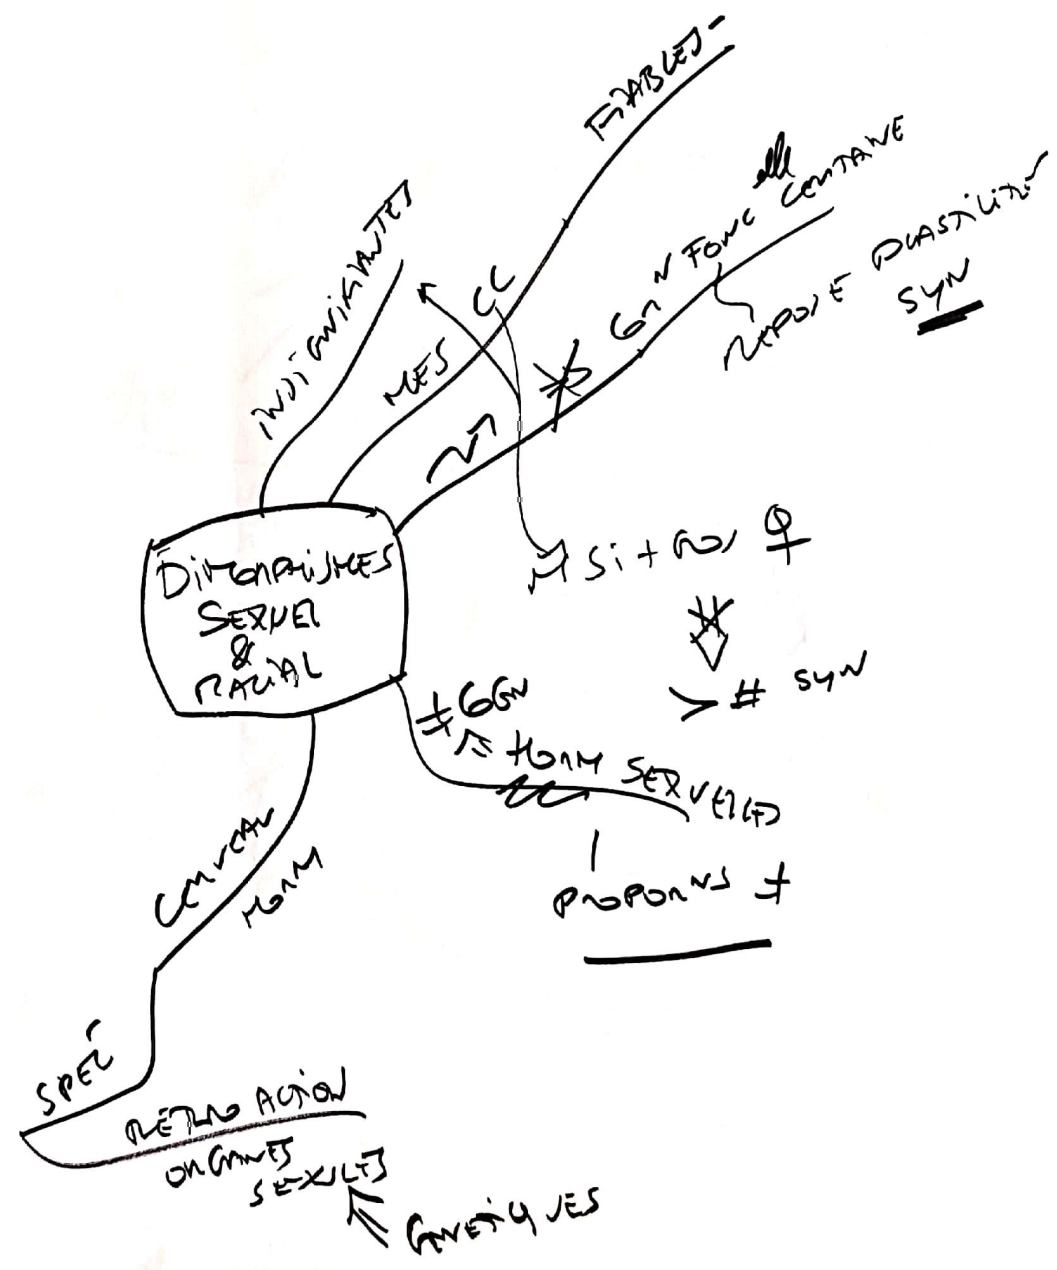 FIABLES
INSIGNIFIANTES
MES
CC
Gr N FONC elle
CERTAINE
REPOSE PLASTICITÉ
SYN
DIMORPHISMES
SEXUEL
&
RACIAL
M Si + GROS ♀
> # SYN
HORM SEXUELLES
PROPORNS ≠
CERVEAU
HORM
SPÉC
RÉTROACTION
ORGANES
SEXUELS
GÉNÉTIQUES